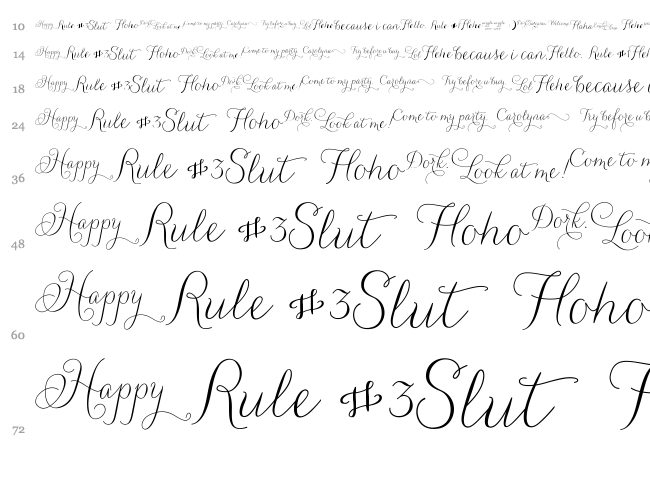 10 Happy Rule #3 Slut Hoho Dork. Look at me! Come to my party. Carolyna Try before u buy. Lol Hehe because i can. Hello. Rule #1 Hehe
14 Happy Rule #3 Slut Hoho Dork. Look at me! Come to my party. Carolyna Try before u buy. Lol Hehe because i can. Hello. Rule #1
18 Happy Rule #3 Slut Hoho Dork. Look at me! Come to my party. Carolyna Try before u buy. Lol Hehe because i
24 Happy Rule #3 Slut Hoho Dork. Look at me! Come to my party. Carolyna Try before u
36 Happy Rule #3 Slut Hoho Dork. Look at me! Come to m
48 Happy Rule #3 Slut Hoho Dork. Loo
60 Happy Rule #3 Slut Hoho
72 Happy Rule #3 Slut